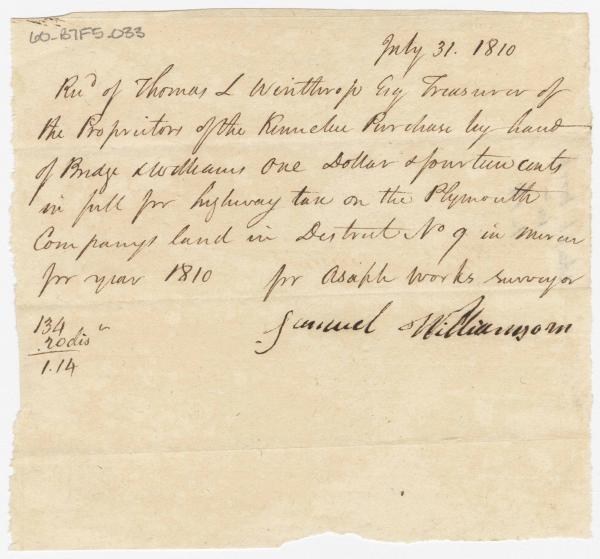 60-B7F5.033
July 31. 1810
Recd of Thomas L Winthrop Esq Treasurer of
the Proprietors of the Kennebec Purchase by hand
of Bridge & Williams one Dollar & fourteen cents
in full for highway tax on the Plymouth
Companys land in District No 9 in Mercer
for year 1810 for Asaph Works surveyor
134
.20 dis
1.14
Samuel Williamson